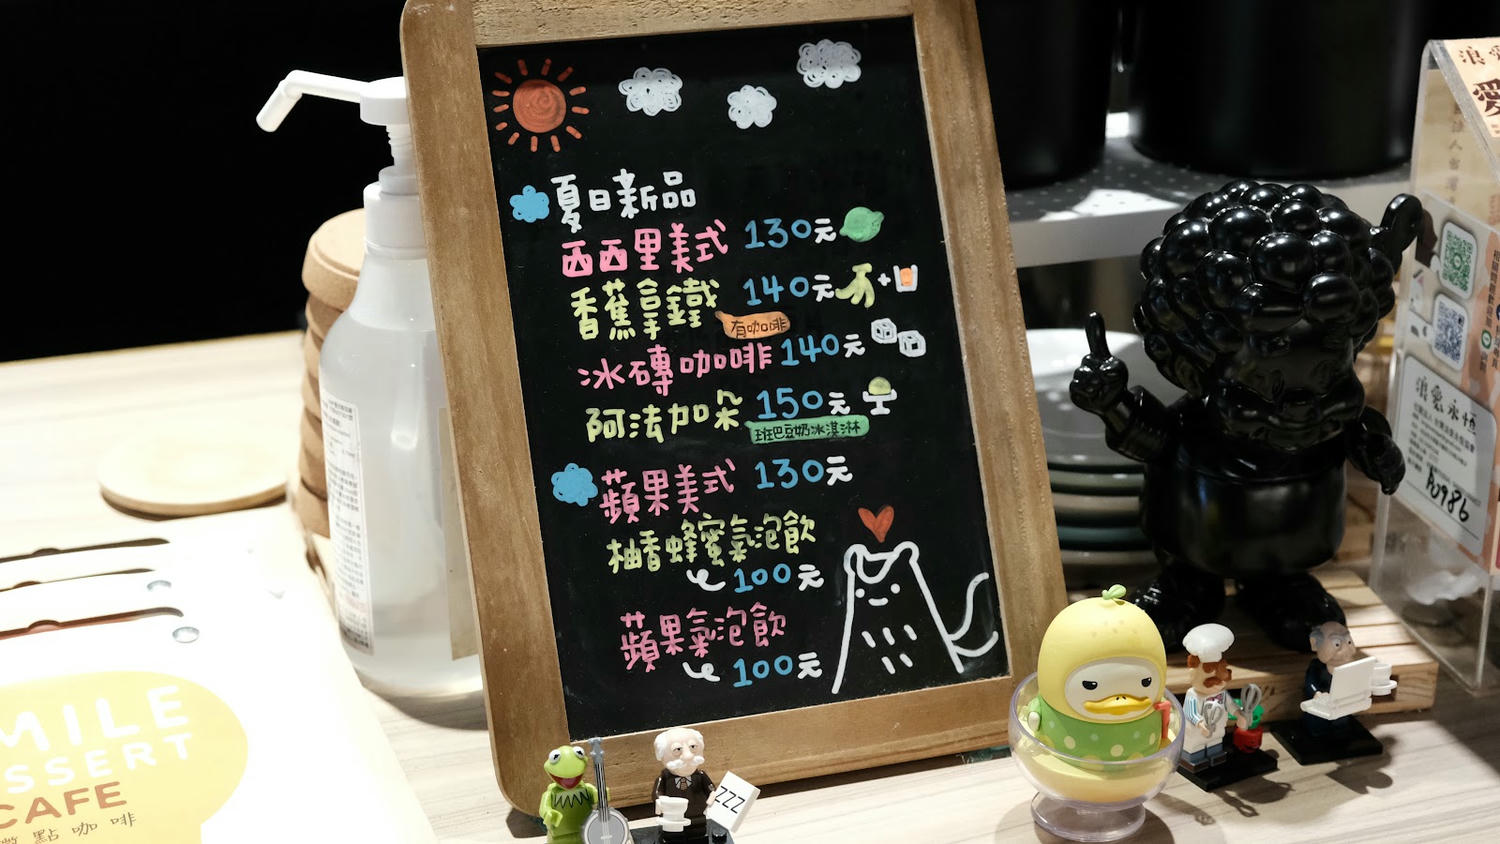 夏日新品
西西里美式 130元
香蕉拿鐵 140元
有咖啡
冰磚咖啡 140元
阿法加朵 150元
班巴豆奶冰淇淋
蘋果美式 130元
柚香蜂蜜氣泡飲
100元
蘋果氣泡飲
100元
MILE
SSERT
CAFE
點咖啡
ZZZ
浪愛
愛
浪愛永恆
A0986